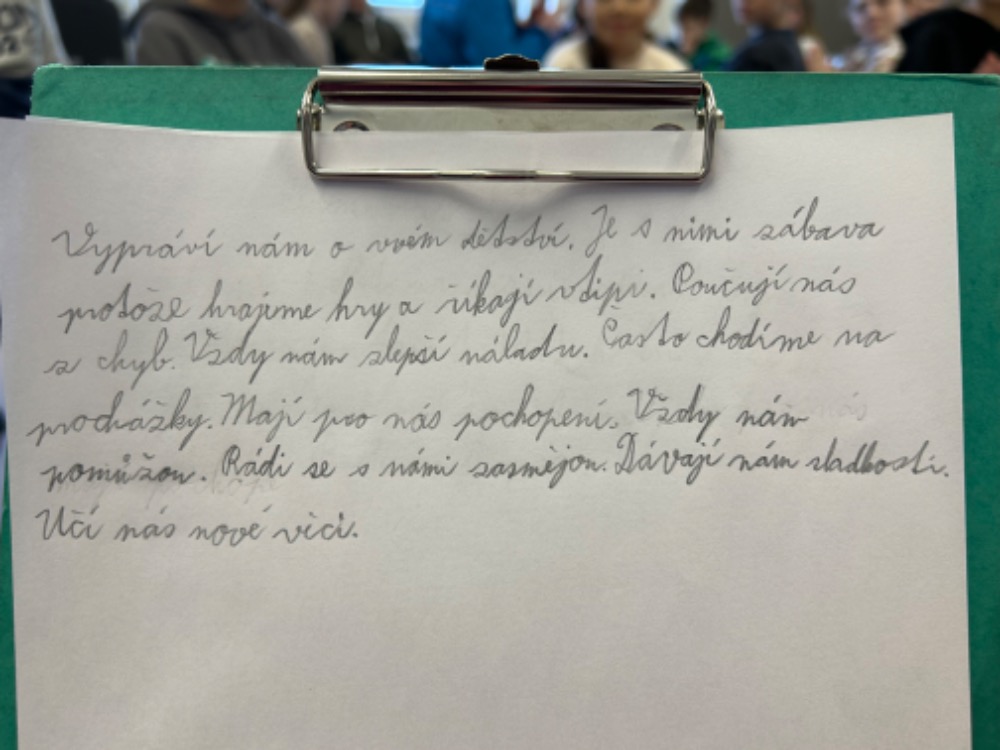 Vypráví nám o svém dětství. Je s nimi zábava
protože hrajeme hry a říkají vtipi. Poučují nás
z chyb. Vždy nám zlepší náladu. Často chodíme na
procházky. Mají pro nás pochopení. Vždy nám
pomůžou. Rádi se s námi zasmějou. Dávají nám sladkosti.
Učí nás nové věci.